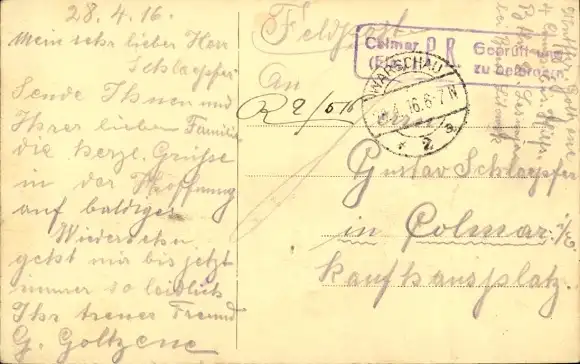 28.4.16.
Mein sehr lieber Herr
Schlaepfer
Sende Ihnen und
Ihrer lieben Familie
die herzl. Grüsse
in der Hoffnung
auf baldiges
Wiedersehn,
geht mir bis jetzt
immer so leidlich
Ihr treuer Freund
G. Goltzene
Feldpost
Colmar P. K. Geprüft und
(Els.) zu befördern
WARSCHAU
.4.16.6-7N
An
Herrn
Gustav Schlaepfer
in Colmar i/E
Kaufhausplatz.